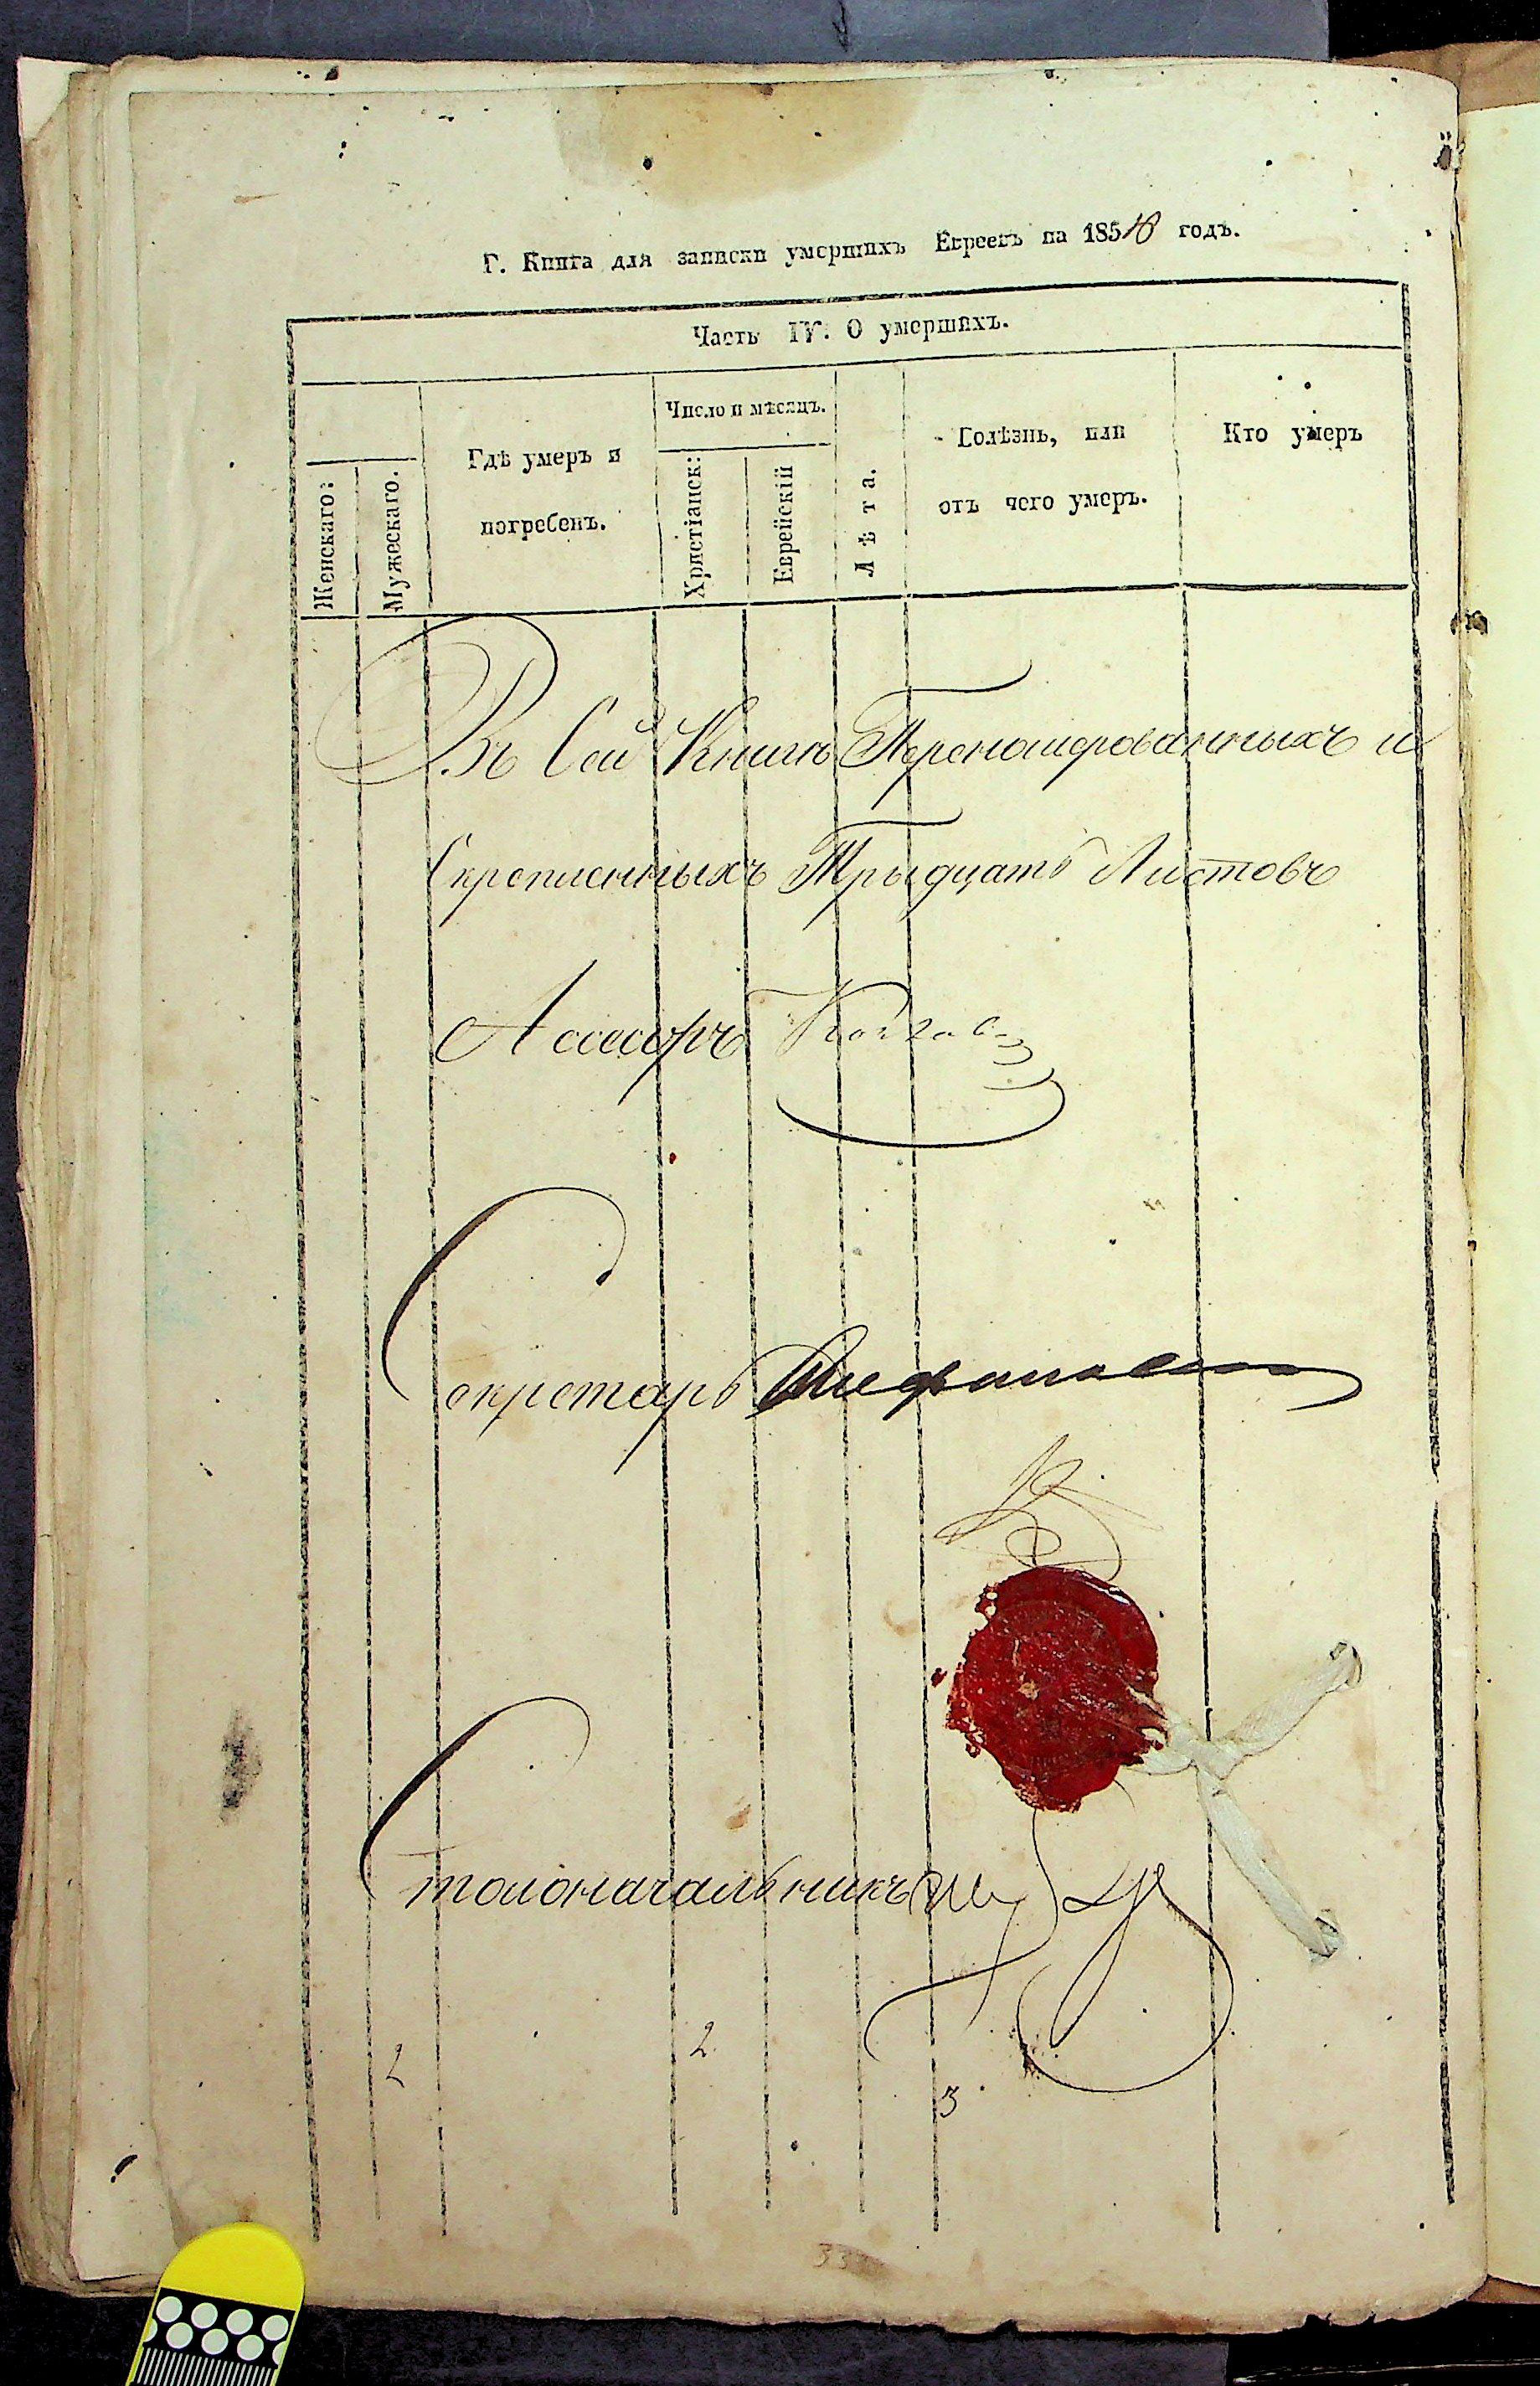 Г. Книга для записки умершихъ Евреевъ на 1858 годъ.
Часть IV. О умершихъ.
Женскаго:
Мужескаго.
Гдѣ умеръ и
погребенъ.
Число и мѣсяцъ.
Христіанск:
Еврейскій
Лѣта.
Болѣзнь, или
отъ чего умеръ.
Кто умеръ
Въ Сей Книгѣ Переномерованныхъ и
Скрепленныхъ Трыдцать Листовъ
Асесоръ
Секретарь
Столоначальникъ
2
2
3